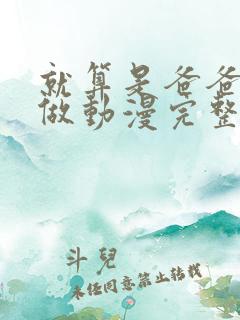 就算是爸爸
做動漫完整
斗兒
未经同意禁止转载